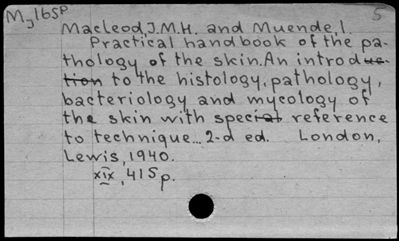 My165p
5
MacLeod, J.M.H. and Muende, I.
Practical handbook of the pa-
thology of the skin. An introduc-
tion to the histology, pathology,
bacteriology and mycology of
the skin with special reference
to technique... 2-d ed. London,
Lewis, 1940.
xix, 415 p.